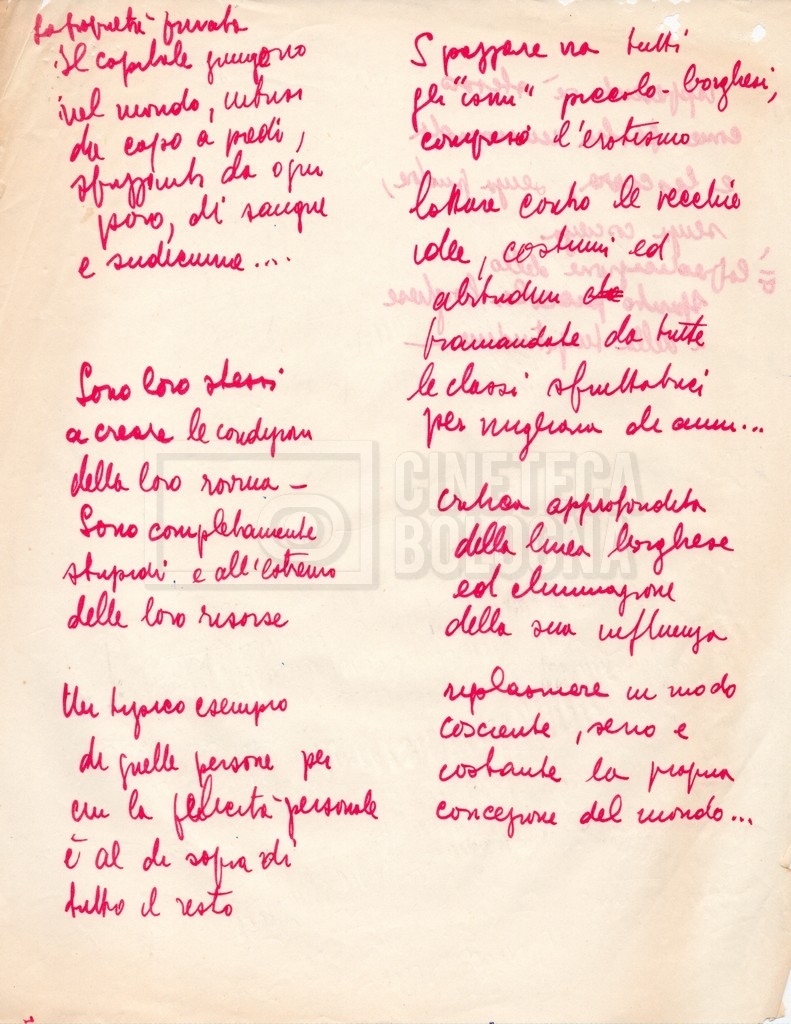 La proprietà privata
il capitale giungono
nel mondo, intrisi
da capo a piedi,
sprizzanti da ogni
poro, di sangue
e sudiciume....
Sono loro stessi
a creare le condizioni
della loro rovina –
Sono completamente
stupidi e all'estremo
delle loro risorse
Un tipico esempio
di quelle persone per
cui la felicità personale
è al di sopra di
tutto il resto
Spazzare via tutti
gli "ismi" piccolo-borghesi,
compreso l'erotismo
lottare contro le vecchie
idee, costumi ed
abitudini
tramandate da tutte
le classi sfruttatrici
per migliaia di anni...
critica approfondita
della linea borghese
ed eliminazione
della sua influenza
riplasmare in modo
cosciente, serio e
costante la propria
concezione del mondo...
CINETECA
BOLOGNA